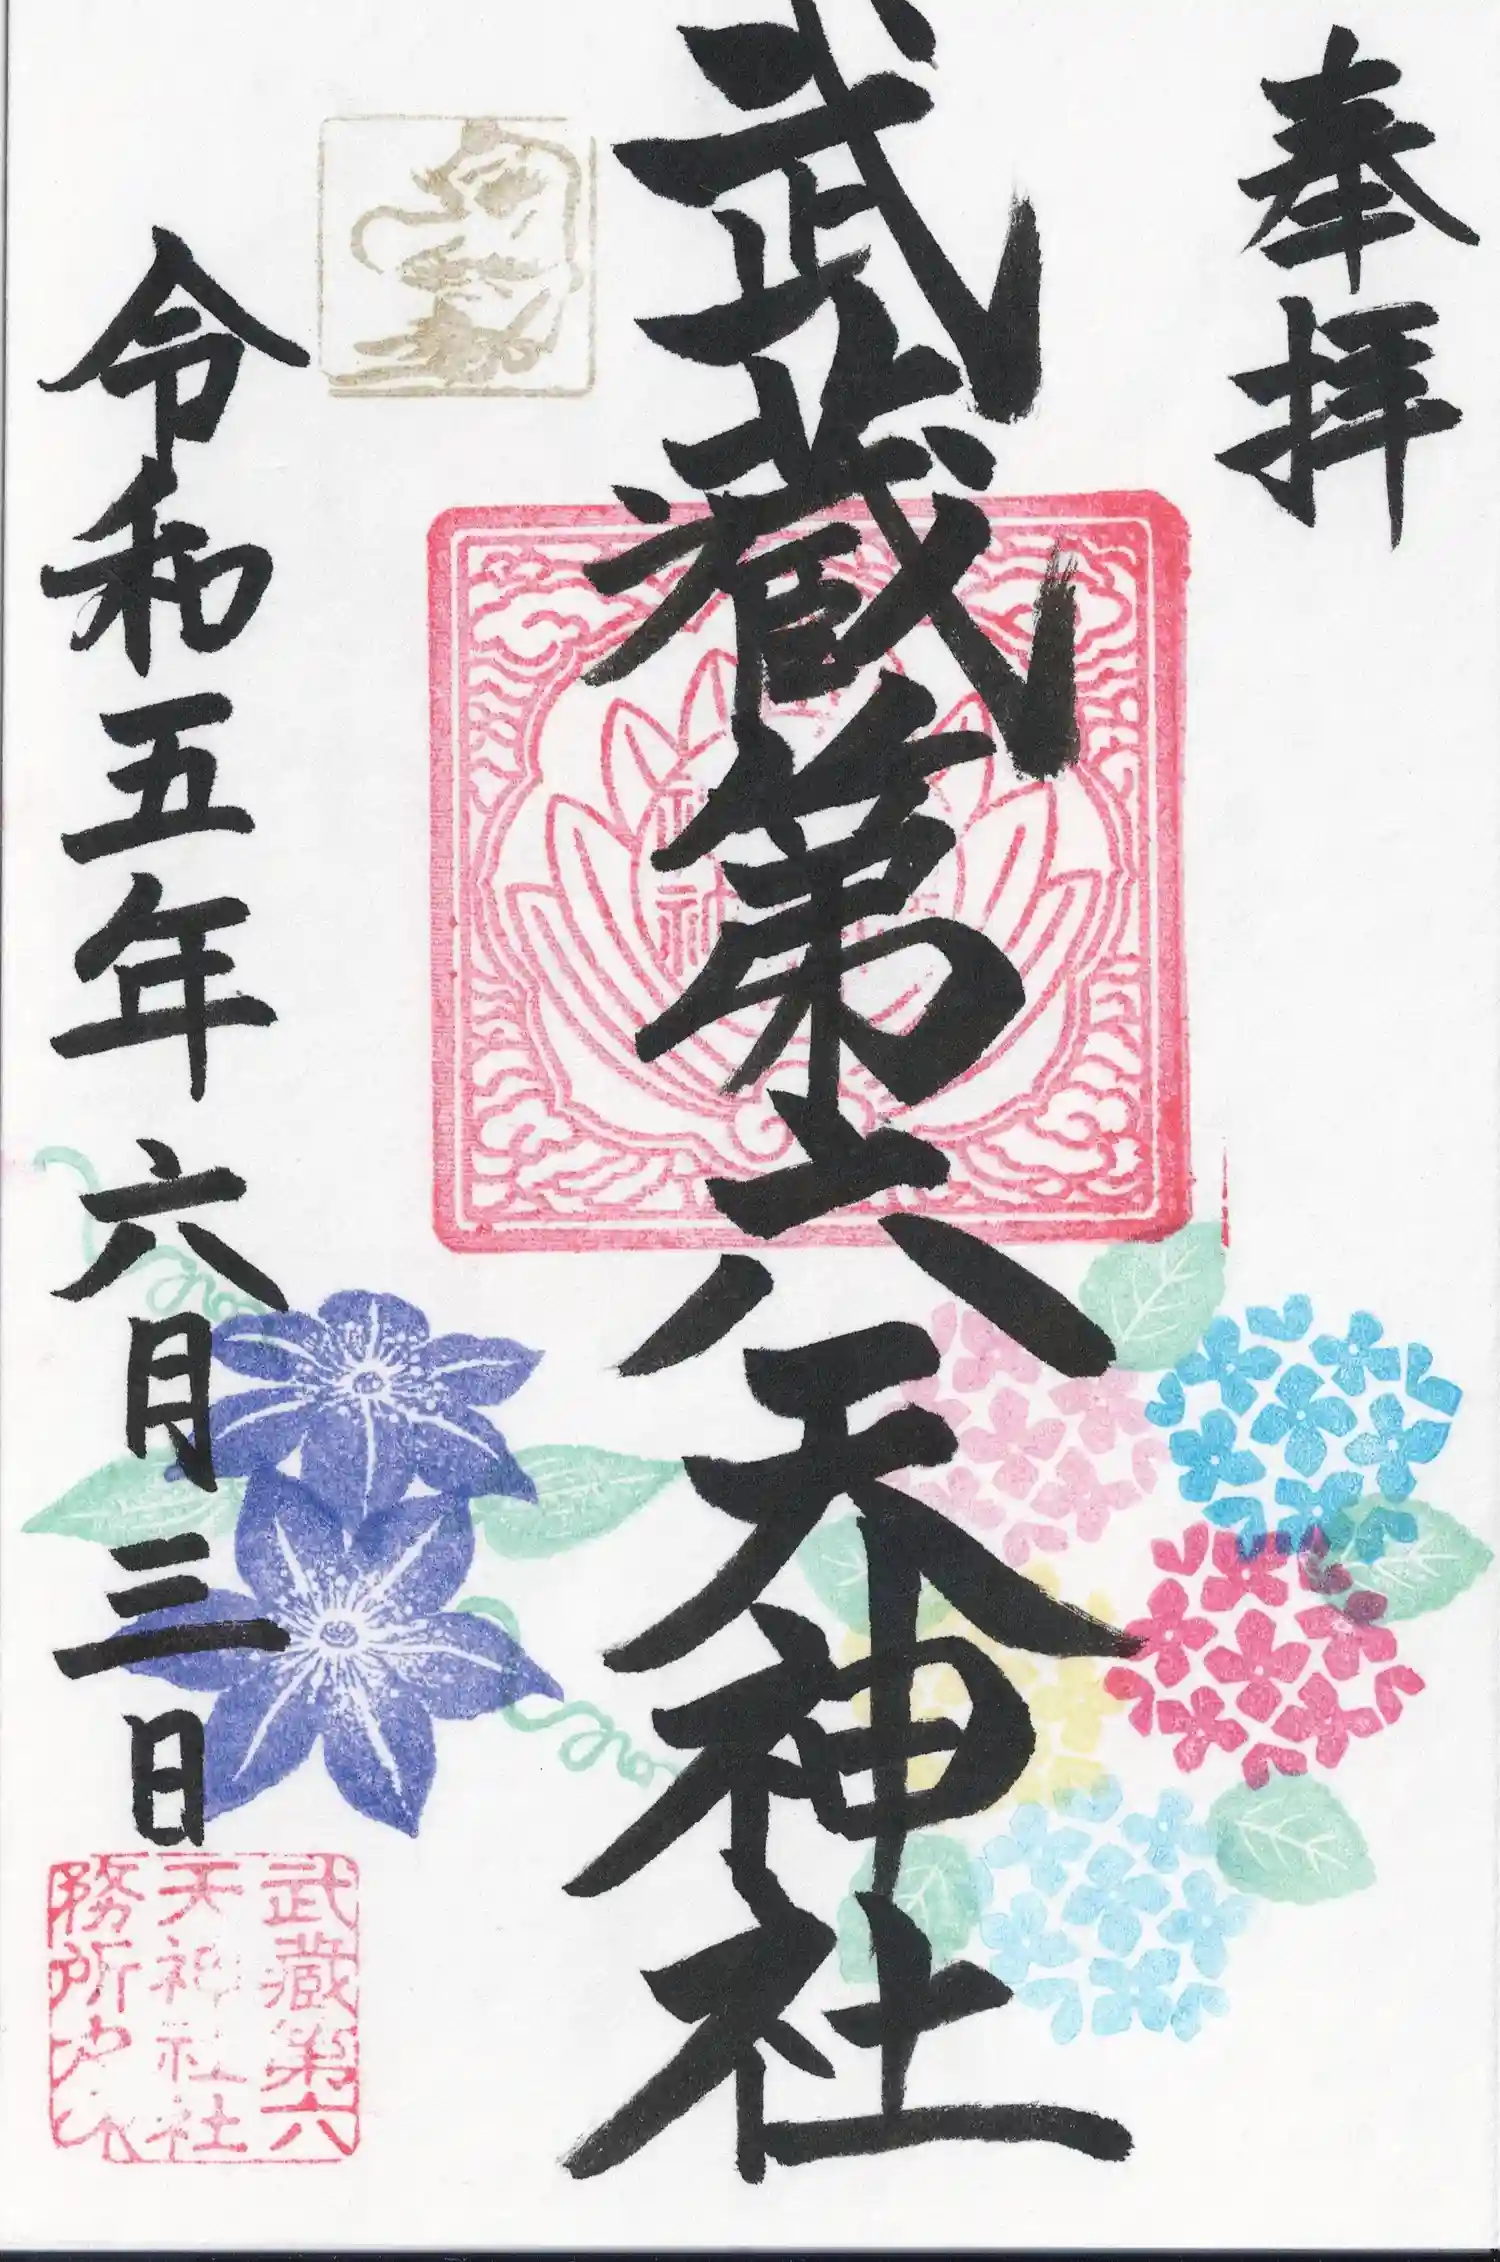 奉拝
武蔵第六天神社
令和五年六月三日
武蔵第六
天神社社
務所